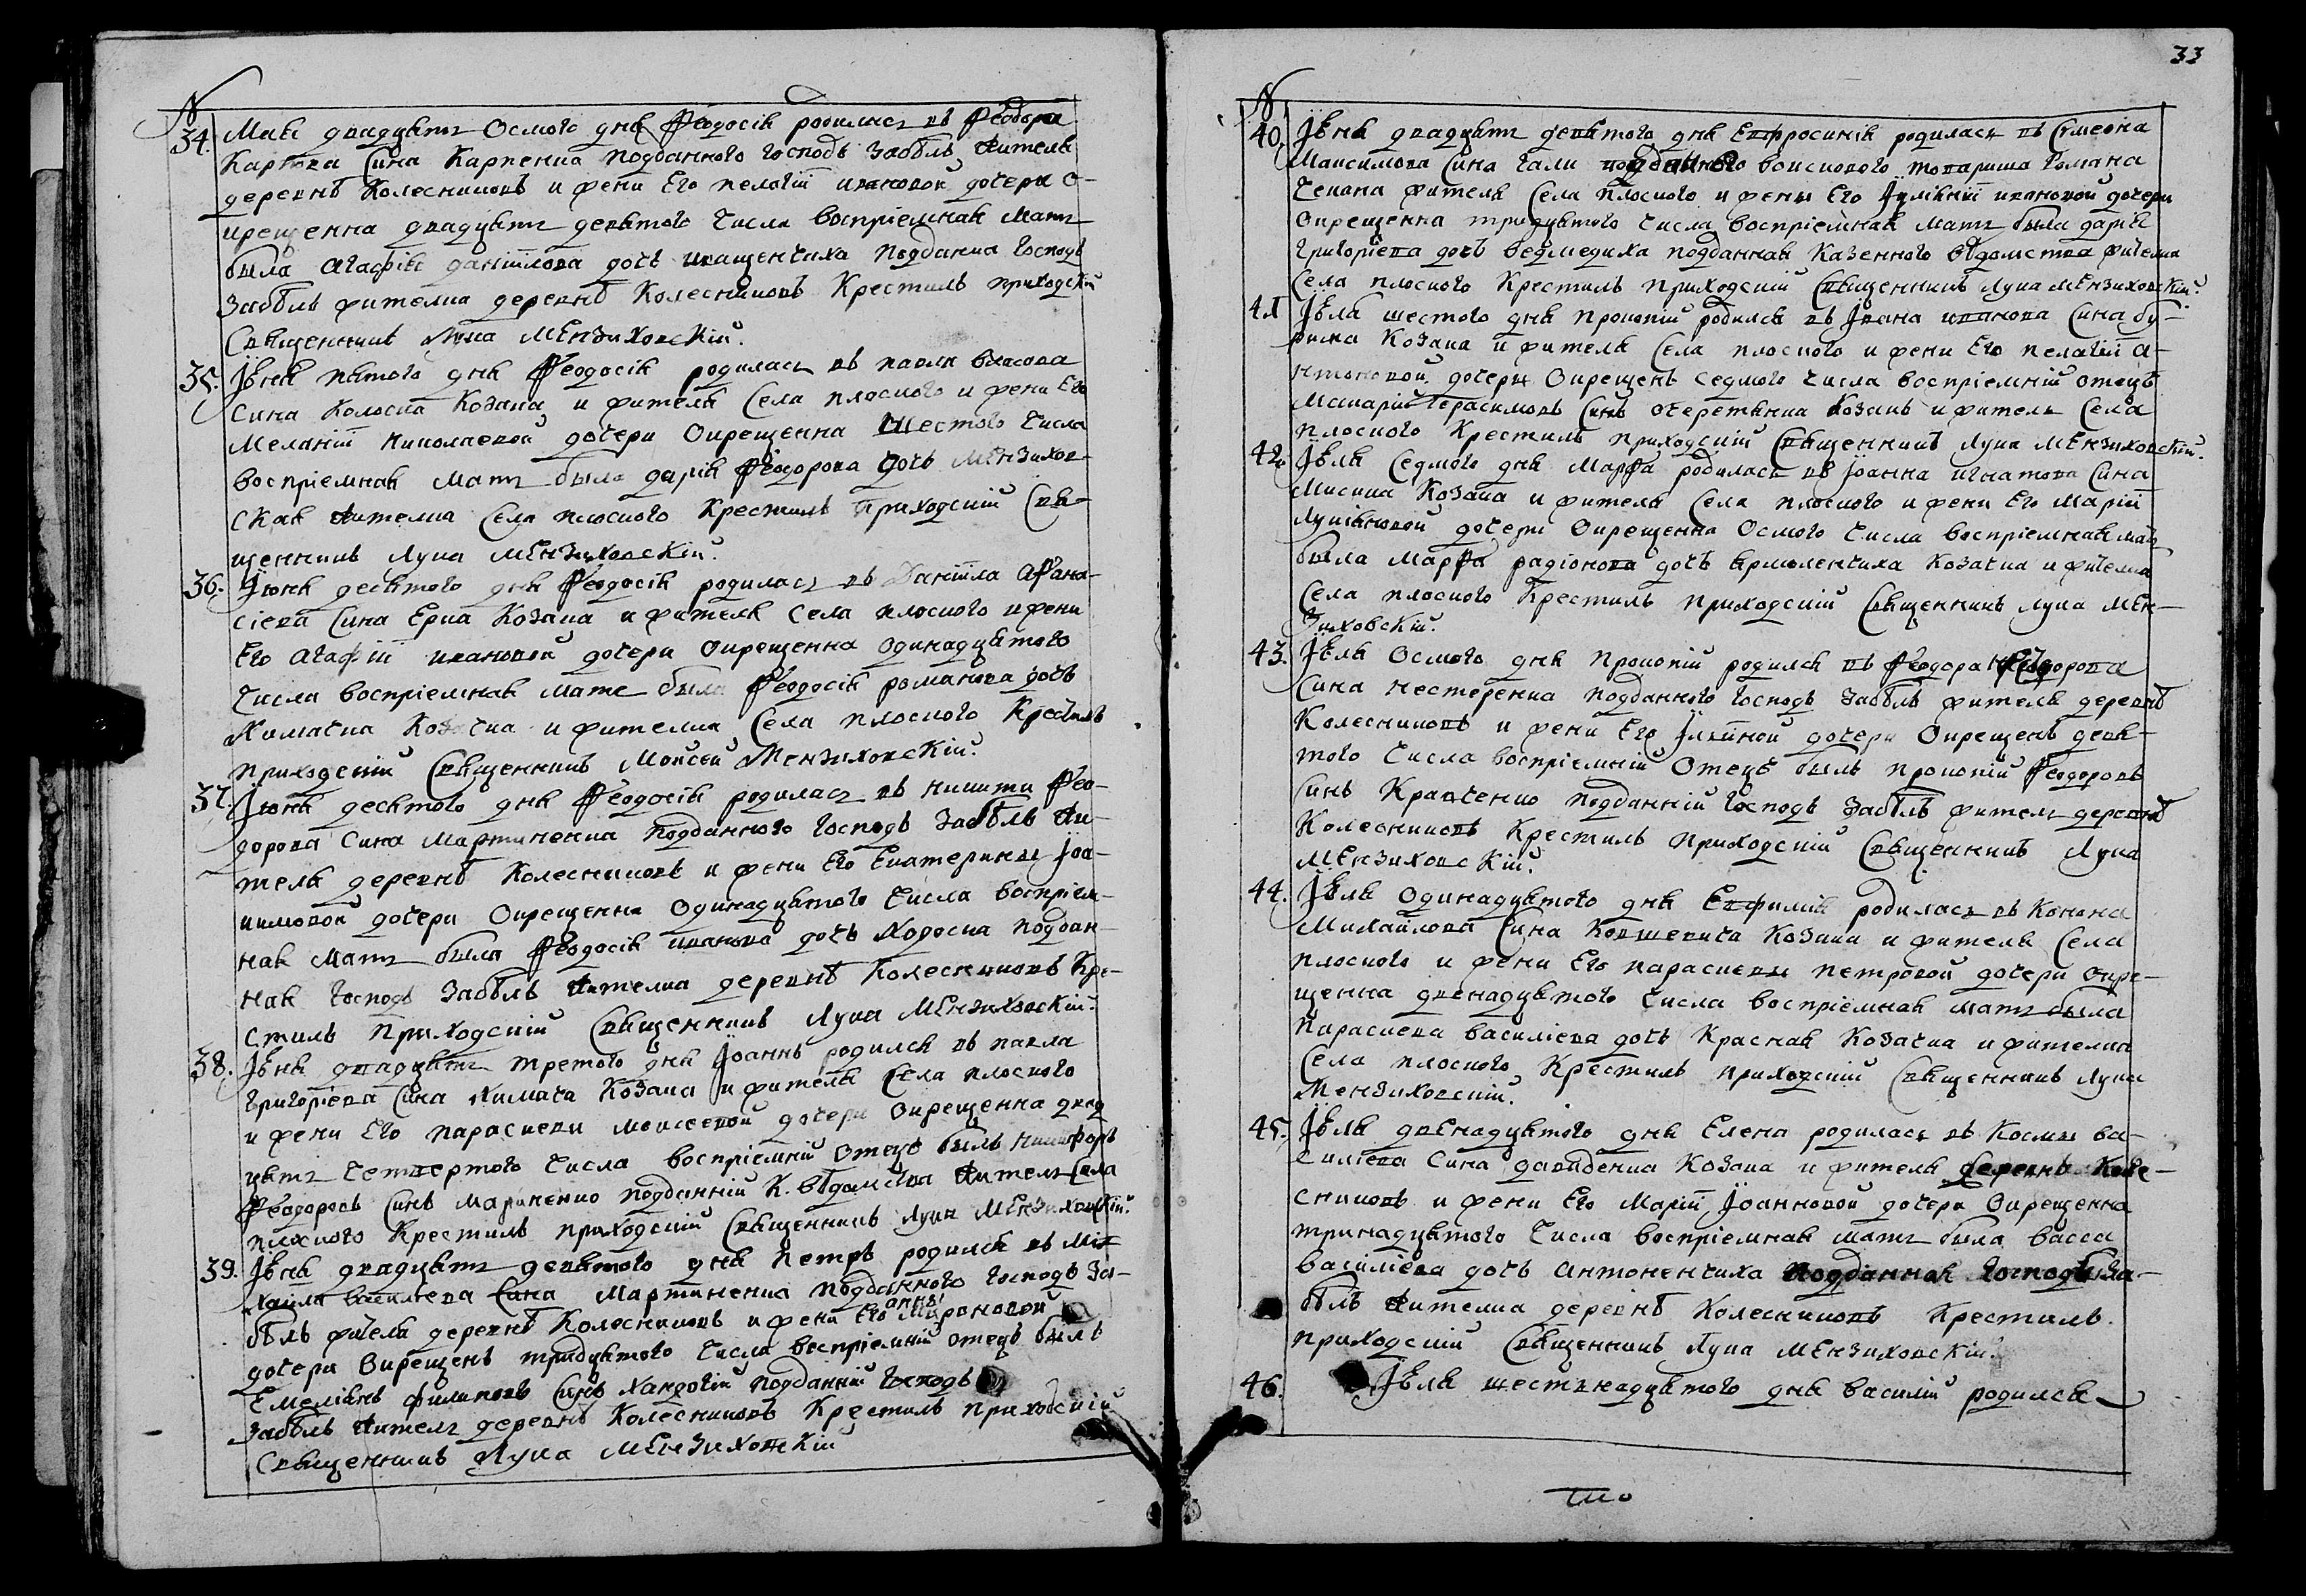 33
N
34. Маія двадцять Осмого дня Ѳеодосія родилась въ Ѳеодора
Карпова Сина Карпенка подданного Господъ Забѣлъ жителя
деревнѣ Колесниковъ и жени Его пелагіи ивановой дочери о-
крещенна двадцять девятого Числа воспріемная Мать
была Агафія даніилова дочь иващенчиха Подданна Господъ
Забѣлъ жителка деревнѣ Колесниковъ Крестилъ приходскій
Священникъ Лука МЕнзиховскій.
35. Іюня пятого дня Ѳеодосія родилась въ павла власова
Сина Колоска Козака и жителя Села плоского и жени Его
Меланіи николаевой дочери Окрещенна Шестого Числа
воспріемная Мать была дарія Ѳеодорова дочь МЕнзихов-
ская жителка Села плоского Крестилъ Приходскій Свя-
щенникъ Лука МЕнзиховскій.
36. Іюня десятого дня Ѳеодосія родилась въ Даніила Аѳана-
сіева Сина Ерка Козака и жителя Села плоского и жени
Его Агафіи ивановой дочери Окрещенна одинадцятого
Числа воспріемная мате была Ѳеодосія романова дочь
Козачка и жителка Села плоского Крестилъ
приходскій Священникъ Моисей Мензиховскій.
37. Іюня десятого дня Ѳеодосія родилась въ никити Ѳео-
дорова Сина Мартиненка подданного Господъ Забѣлъ жи-
теля деревнѣ Колесниковъ и жени Его Екатерины Іоа-
кимовой дочери Окрещенна Одинадцятого Числа воспріем-
ная Мать была Ѳеодосія иванова дочь Ходоска поддан-
ная Господъ Забѣлъ жителка деревнѣ Колесниковъ Кре-
стилъ Приходскій Священникъ Лука МЕнзиховскій.
38. Іюня двадцять третого дня Іоаннъ родился въ павла
Григоріева Сина Химача Козака и жителя Села плоского
и жени Его параскеви моисеевой дочери Окрещенна двад
цять Четвертого Числа воспріемній Отецъ былъ никифоръ
Ѳеодоровъ Синъ Мариненко подданній К. вѣдомства жителъ Села
плоского Крестилъ приходскій Священникъ Лука МЕнзиховскій.
39. Іюня двадцять девятого дня Петръ родился въ Ми
хаила василіева Сина Мартиненка подданного Господъ За-
бѣлъ жителя деревнѣ Колесниковъ и жени Его анны Мироновой
дочери Окрещенъ тридцятого Числа воспріемній отецъ былъ
Емеліянъ филиповъ Синъ Хандогій подданній Господъ
Забѣлъ жителъ деревнѣ Колесниковъ Крестилъ приходскій
Священникъ Лука МЕнзиховскій
N
40. Іюня двадцять девятого дня Евфросинія родилась въ Симеона
Максимова Сина Гали подданного воискового товариша Романа
жителя Села Плоского и жены Его Іуліяніи ивановой дочери
окрещенна тридцятого Числа воспріемная Мать была дарія
Григоріева дочь ведмедиха подданная Казенного вѣдомства жителка
Села плоского Крестилъ Приходскій Священникъ Лука МЕнзиховскій.
41 Іюля шестого дня прокопій родился въ Іоана иванова Сина Бу-
рима Козака и жителя Села плоского и жени Его пелагіи А-
нтоновой дочери Окрещенъ Седмого Числа воспріемній отецъ
Макарій Герасимовъ Синъ очеретянка Козакъ и жителъ Села
плоского Крестилъ приходскій Священникъ Лука МЕнзиховскій.
42. Іюля Седмого дня Марѳа родилась въ Іоанна игнатова Сина
Мисика Козака и жителя Села плоского и жени Его Маріи
Лукіяновой дочери Окрещенна Осмого Числа воспріемная мать
была Марѳа радіонова дочь ярмоленчиха Козачка и жителка
Села плоского Крестилъ приходскій Священникъ Лука МЕн-
зиховскій.
43. Іюля Осмого дня прокопій родился въ Ѳеодора Ѳеодорова
Сина нестеренка подданного Господъ Забѣлъ жителя деревнѣ
Колесниковъ и жени Его дочери Окрещенъ девя-
того Числа воспріемній Отецъ былъ прокопій Ѳеодоровъ
Синъ Кравченко подданній Господъ Забѣлъ жителъ деревнѣ
Колесниковъ Крестилъ приходскій Священникъ Лука
МЕнзиховскій.
44. Іюля Одинадцятого дня Евфимія родилась въ Конона
Михайлова Сина Ковшевича Козака и жителя Села
плоского и жени Его параскевы петровой дочери окре-
щенна двенадцятого Числа воспріемная мать была
Параскева василіева дочь Красная Козачка и жителка
Села плоского Крестилъ приходскій Священникъ Лука
Мензиховскій.
45. Іюля двЕнадцятого дня Елена родилась въ Космы ва-
силіева Сина давиденка Козака и жителя деревнѣ Коле-
сниковъ и жени Его Маріи Іоанновой дочери Окрещенна
тринадцятого Числа воспріемная мать была васса
василіева дочь антоненчиха подданная Господъ За-
бѣлъ жителка деревнѣ Колесниковъ Крестилъ
приходскій Священникъ Лука МЕнзиховскій.
46. Іюля шестнадцятого дня василій родился